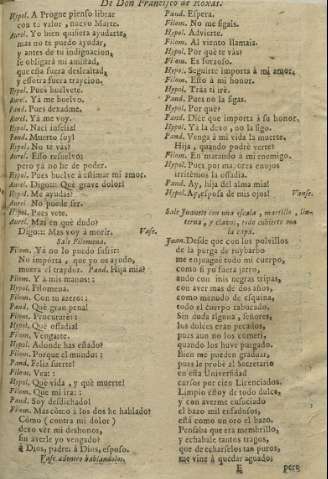 De Don Francisco de Roxas.
Hypol. A Progne pienso librar
con tu valor, nuevo Marte.
Aurel. Yo bien quisiera ayudarte,
mas no te puedo ayudar,
y antes de tu indignacion,
se obligarà mi amistad,
que essa fuera deslealtad,
y essotra fuera traycion.
Hypol. Pues huelvete.
Aurel. Yà me huelvo.
Pand. Pues dexadme.
Aurel. Yà me voy.
Hypol. Naci infeliz!
Pand. Muerto soy!
Hypol. No te vàs?
Aurel. Esso resuelvo:
pero yà no he de poder.
Hypol. Pues buelve à estimar mi amor.
Aurel. Digo::: Què grave dolor!
Hypol. Me ayudas?
Aurel. No puede ser.
Hypol. Pues vete.
Aurel. Mas en què dudo?
Digo::: Mas voy à morir. Vase.
Sale Filomena.
Filom. Yà no lo puedo sufrir:
No importa, que yo os ayudo,
muera el traydor. Pand. Hija mia?
Filom. Y à mis manos::
Hypol. Filomena.
Filom. Con tu azero::
Pand. Què gran pena!
Filom. Procurarè::
Hypol. Què ossadia!
Filom. Vengarte.
Hypol. Adonde has estado?
Filom. Porque el mundo::
Pand. Feliz suerte!
Filom. Vea:
Hypol. Què vida, y què muerte!
Filom. Que mi ira::
Pand. Soy desdichado!
Filom. Mas còmo à los dos he hablado?
Còmo (contra mi dolor)
devo ver mi deshonor,
sin averle yo vengado?
à Dios, padre: à Dios, esposo.
Vase adentro hablandolos.
Pand. Espera.
Filom. No me sigais.
Hypol. Advierte.
Filom. Al viento llamais.
Hypol. Por què te vàs?
Filom. Es forzoso.
Hypo. Seguirte importa à mi amor.
Filom. Esso à mi honor.
Hypol. Tràs ti irè.
Pand. Pues no la sigas.
Hypol. Por què?
Pand. Dice que importa à su honor.
Hypol. Yà la dexo, no la sigo.
Pand. Venga à mi vida la muerte,
Hija, quando podrè verte?
Filom. En matando à mi enemigo.
Hypol. Pues por matarea enojos
irritèmos la ossadia.
Pand. Ay, hija del alma mia!
Hypol. Ay, esposa de mis ojos! Vanse.
Sale Juanete con una escala, martillo, linterna,
y clavos, todo cubierto con
la capa.
Juan. Desde que con los polvillos
de la purga de ruybarbo
me enjuaguè todo mi cuerpo,
como si yo fuera jarro,
ando con mis negras tripas,
con aver mas de dos años,
como menudo de esquina,
todo el cuerpo rabanado.
Sin duda alguna, señores,
los dolces eran pecados,
pues aun no los cometì
quando los huve purgado.
Bien me pueden graduar,
pues la probe al Secretario
en esta Universidad
cursos por cien Licenciados.
Limpio estoy de todo dulce,
y con averme enfuciado
el bazo mil enfadosos,
està como un oro el bazo.
Pensaba que era membrillo,
y echabale tantos tragos,
que de echarselos tan puros,
me vine à quedar aguado:
E pero